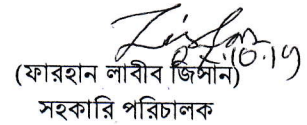 (ফারহান লাবীব জিসান)
সহকারি পরিচালক